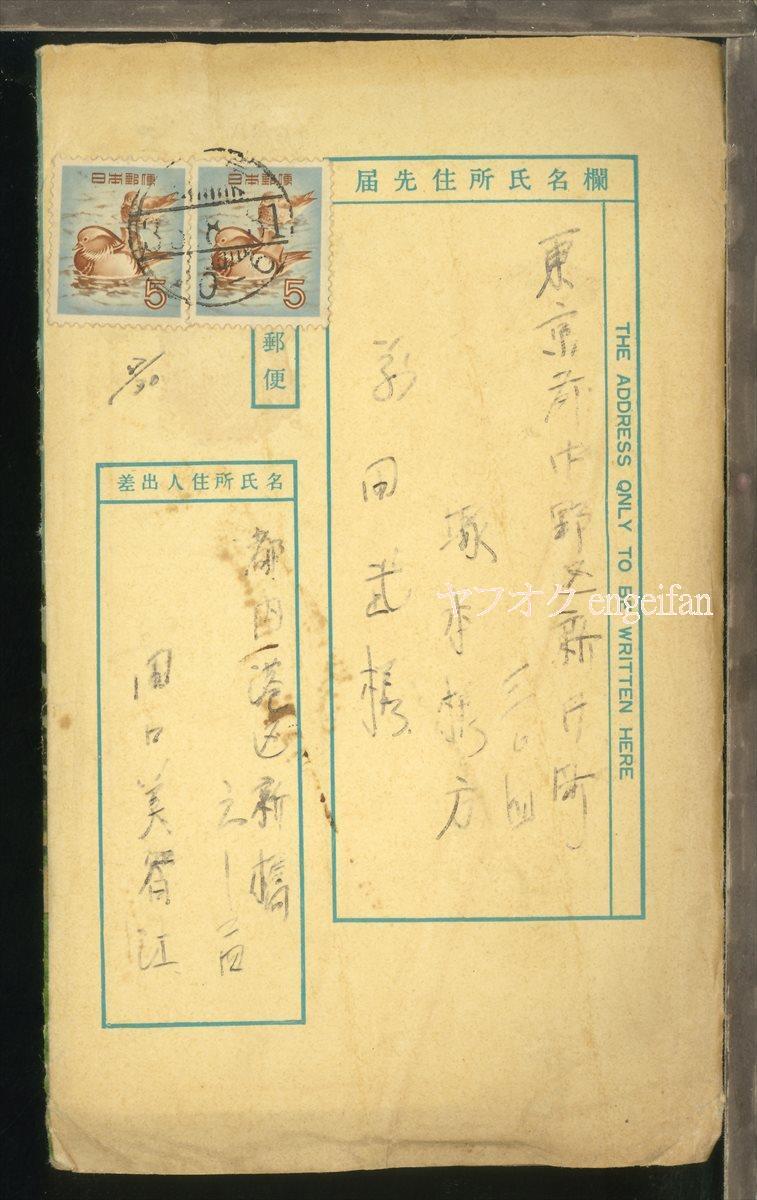 日本郵便
5
日本郵便
5
欄名氏所住先届
THE ADDRESS ONLY TO BE WRITTEN HERE
東京都中野区新井町
三〇四
塚本様方
武様
郵便
名氏所住人出差
都内港区新橋
田口美智江
ヤフオク engeifan